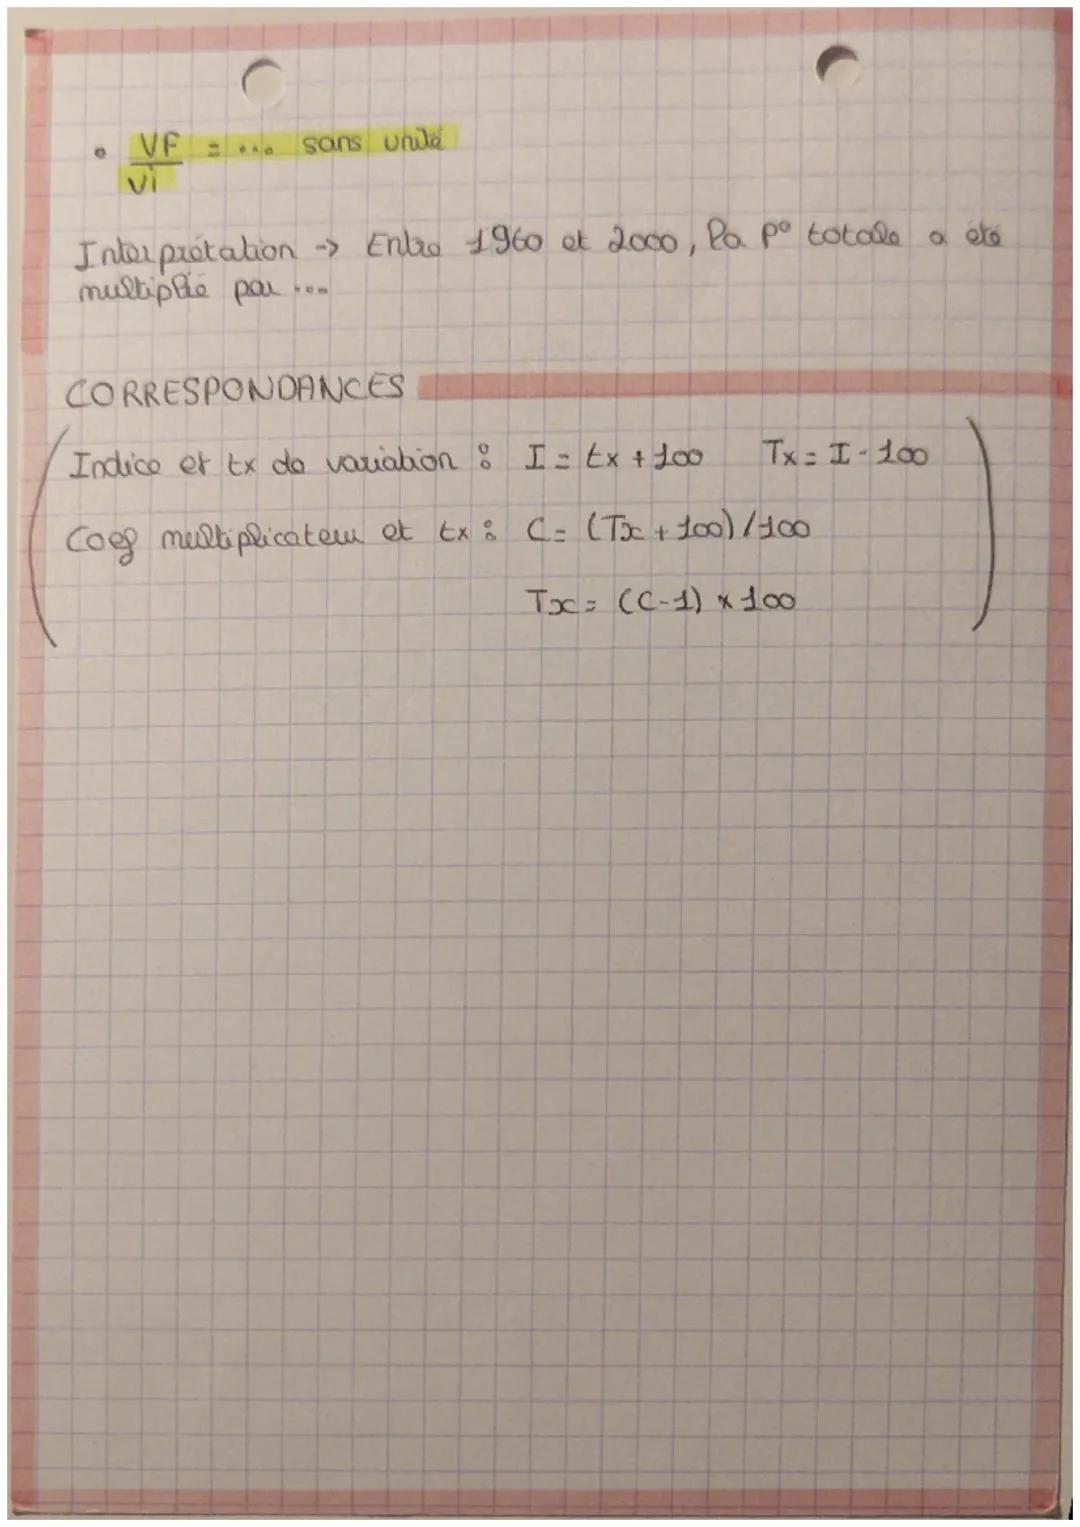 • VF = ... sans unité
Vi
Interprétation -> Entre 1960 et 2000, la p° totale a été
multiplié par ...
CORRESPONDANCES
Indice et tx de variation : I = tx + 100 Tx = I - 100
Coef multiplicateur et tx : C = (Tx + 100) / 100
Tx = (C-1) x 100